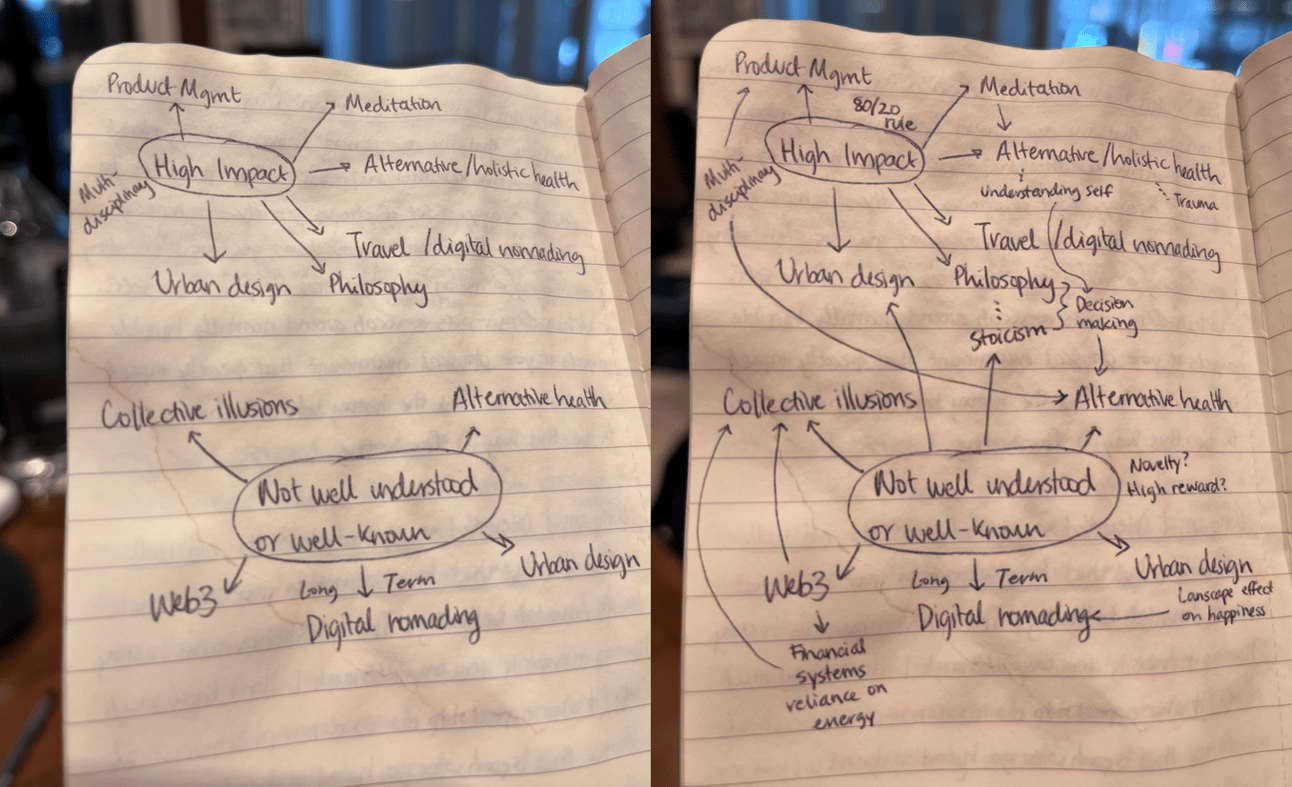 Product Mgmt
Meditation
High Impact
Alternative/holistic health
Multi-
disciplinary
Travel/digital nomading
Urban design
Philosophy
Collective illusions
Alternative health
Not well understood
or well-known
Urban design
Web3
Long Term
Digital nomading
Product Mgmt
80/20
rule
Meditation
High Impact
Alternative/holistic health
Multi-
disciplinary
Understanding self
Trauma
Travel/digital nomading
Urban design
Philosophy
Decision
making
Stoicism
Collective illusions
Alternative health
Novelty?
High reward?
Not well understood
or well-known
Urban design
Web3
Long Term
Digital nomading
Lanscape effect
on happiness
Financial
systems
reliance on
energy